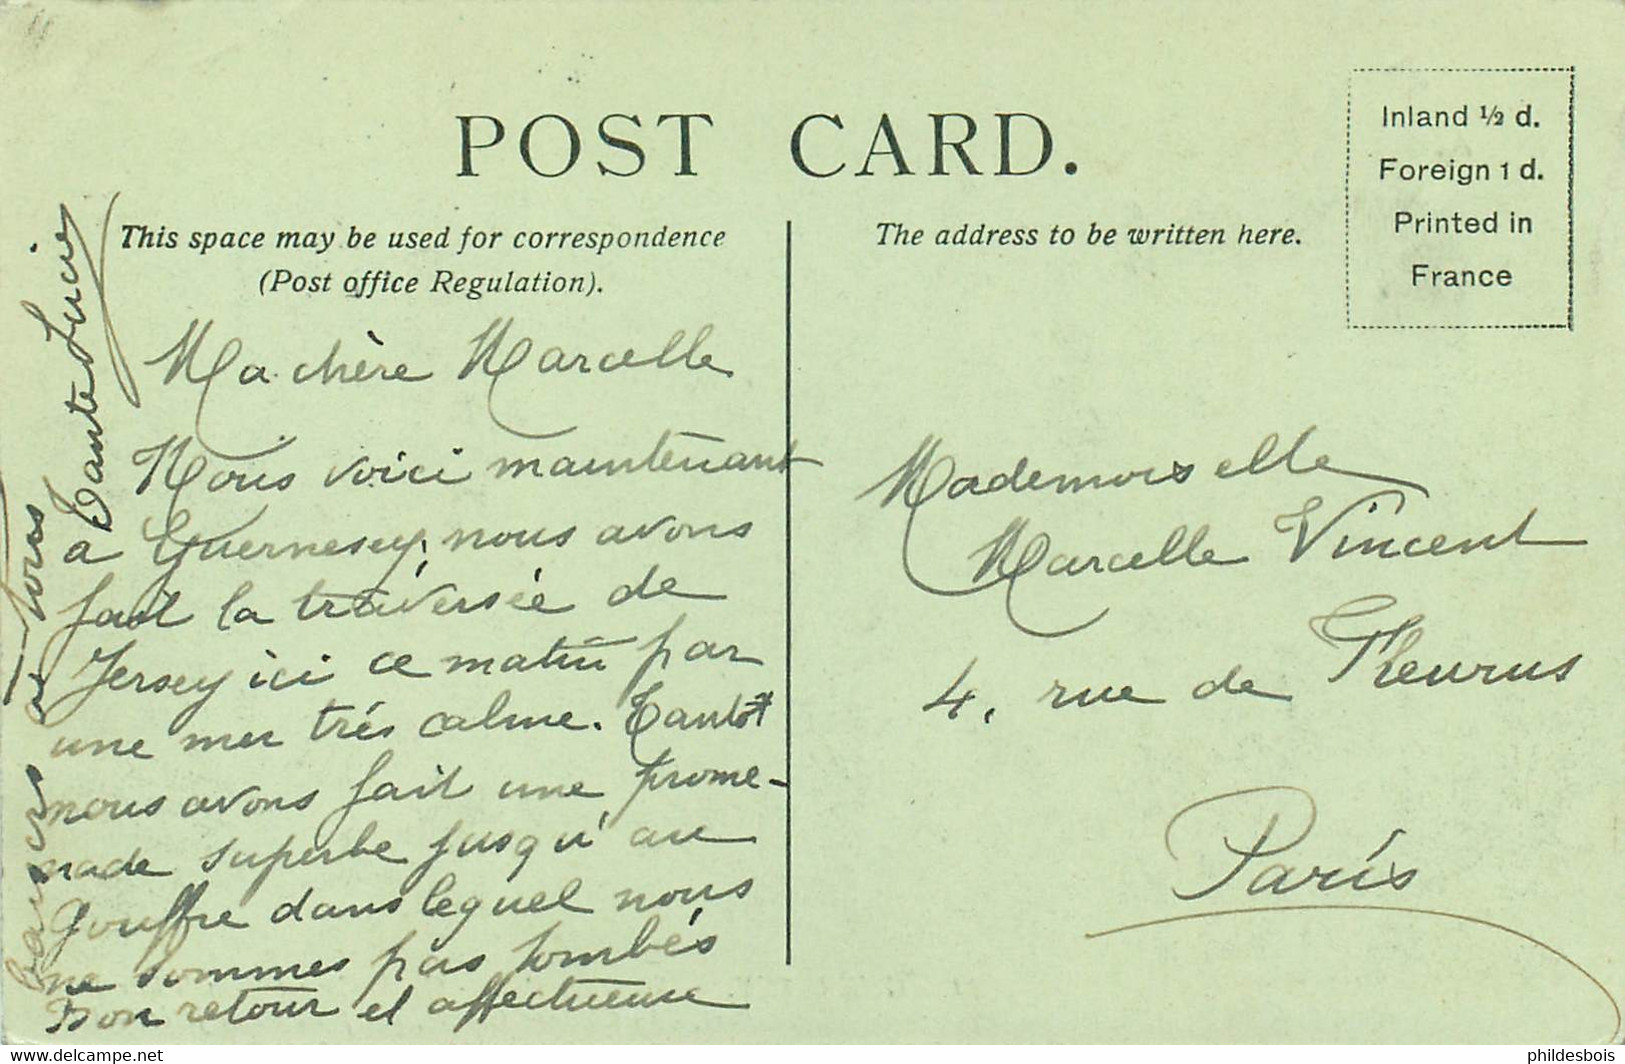 POST CARD.
This space may be used for correspondence
(Post office Regulation).
The address to be written here.
Inland ½ d.
Foreign 1 d.
Printed in
France
Ma chère Marcelle
Nous voici maintenant
à Guernesey, nous avons
fait la traversée de
Jersey ici ce matin par
une mer très calme. Tantôt
nous avons fait une prome-
nade superbe jusqu'au
Gouffre dans lequel nous
ne sommes pas tombés
Bon retour et affectueuse
baisers à tous
Tante Lucie
Mademoiselle
Marcelle Vincent
4, rue de Fleurus
Paris
www.delcampe.net
phildesbois